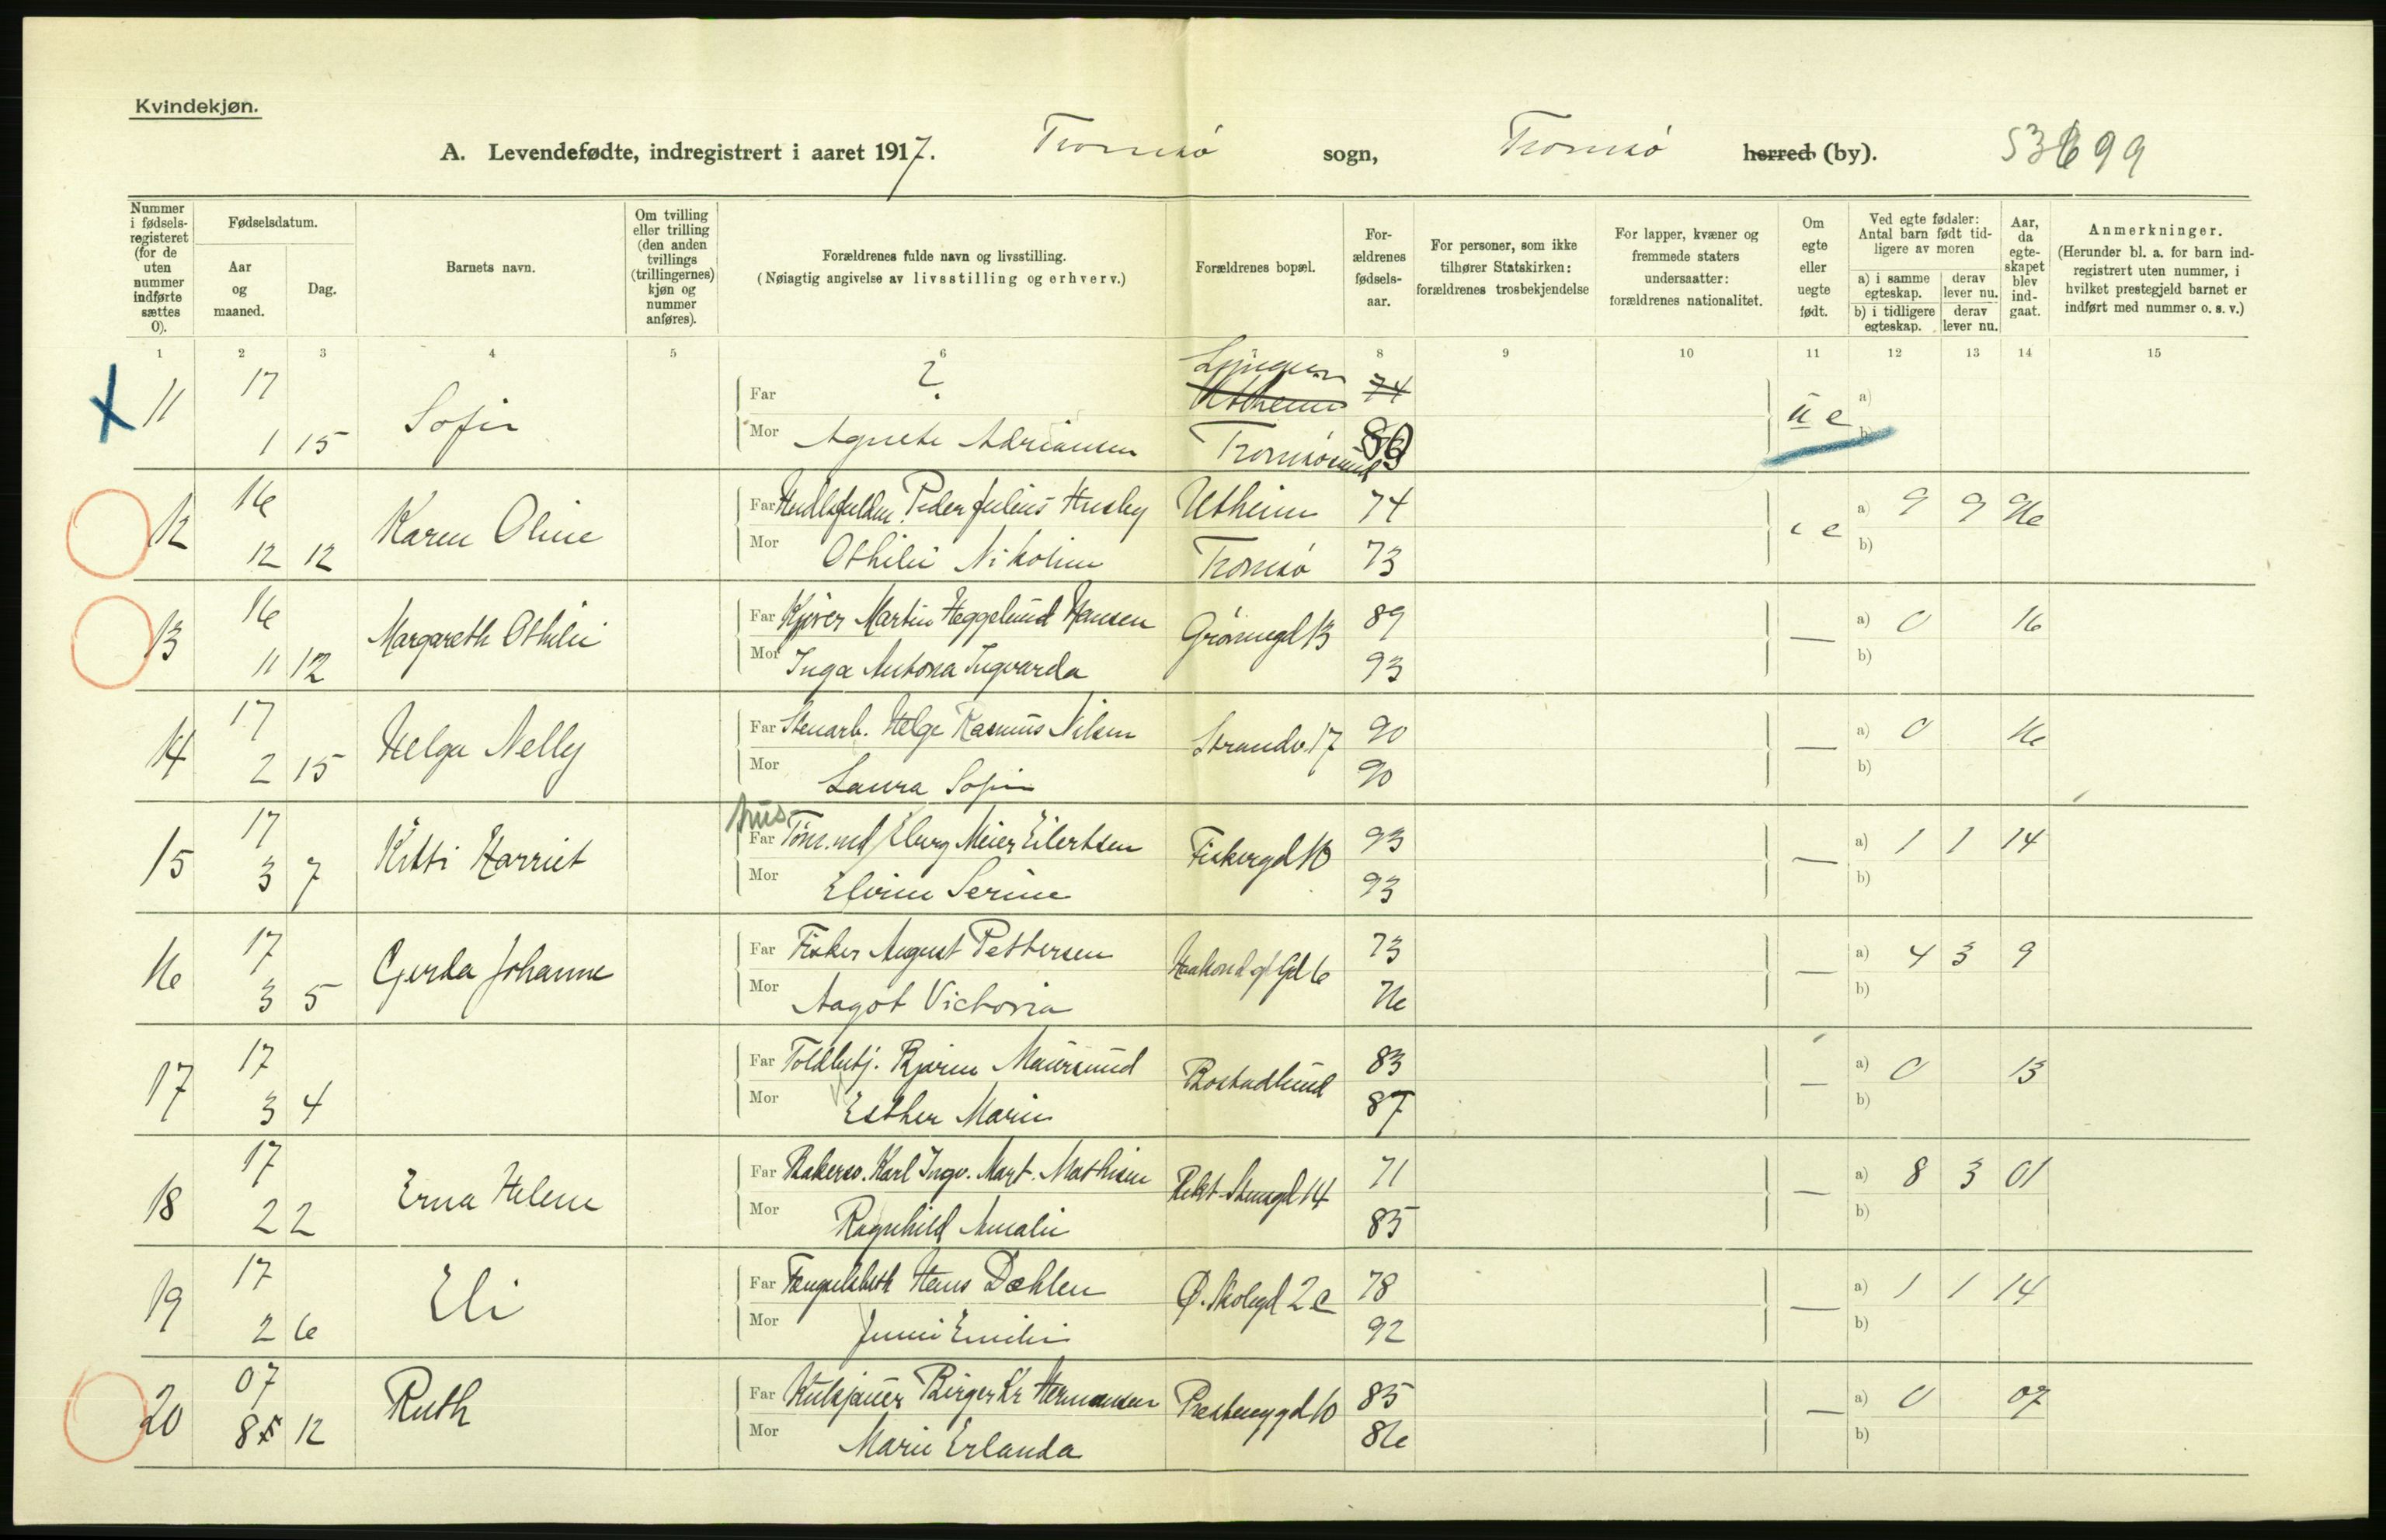 Kvindekjøn.
A. Levendefødte, indregistrert i aaret 1917. Tromsø sogn, Tromsø herred (by). 99
Nummer i fødsels-registeret (for de uten nummer indførte sættes 0).
Fødselsdatum.
Aar og maaned.
Dag.
Barnets navn.
Om tvilling eller trilling (den anden tvillings (trillingernes) kjøn og nummer anføres).
Forældrenes fulde navn og livsstilling.
(Nøiagtig angivelse av livsstilling og erhverv.)
Forældrenes bopæl.
For-ældrenes fødsels-aar.
For personer, som ikke tilhører Statskirken: forældrenes trosbekjendelse
For lapper, kvæner og fremmede staters undersaatter: forældrenes nationalitet.
Om egte eller uegte født.
Ved egte fødsler: Antal barn født tid-ligere av moren
a) i samme egteskap.
derav lever nu.
b) i tidligere egteskap.
derav lever nu.
Aar, da egte-skapet blev ind-gaat.
Anmerkninger.
(Herunder bl. a. for barn ind-registrert uten nummer, i hvilket prestegjeld barnet er indført med nummer o. s. v.)
1 2 3 4 5 6 7 8 9 10 11 12 13 14 15
X 11 17 Sofie Far ? Lyngen 74 a)
1 15 Mor Agnete Adriansen Tromsøsund ue b)
12 16 Karen Oline Far Peder Julius Husby Utheim 74 a) 9 9 96
12 12 Mor Othilie Nikoline Tromsø 73 e b)
13 16 Margareth Othilie Far Kjører Martin Heggelund Hansen Grønnegd 13 89 — a) 0 16
11 12 Mor Inga Antona Ingvarda 93 b)
14 17 Helga Nelly Far Stenarb. Helge Rasmus Nilsen Strandv. 17 90 — a) 0 16
2 15 Mor Laura Sofie 90 b)
hus
15 17 Kitti Harriet Far Tøm.md Elburg Meier Eilertsen Fiskergd 10 93 — a) 1 1 14
3 7 Mor Elvine Serine 93 b)
16 17 Gerda Johanne Far Fisker August Pettersen Haakon d. gl Gd 6 73 — a) 4 3 9
3 5 Mor Aagot Victoria 76 b)
17 17 Far Toldbetj. Bjarne Maursund Bostadlund 83 — a) 0 13
3 4 Mor Esther Marie 87 b)
18 17 Erna Helene Far Bakersv. Karl Ingv. Mart. Mathisen Rekt. Stensgd 14 71 — a) 8 3 01
2 2 Mor Ragnhild Amalie 85 b)
19 17 Eli Far Hans Dæhlen Ø. Skolegd 2c 78 — a) 1 1 14
2 6 Mor Jenni Emilie 92 b)
20 07 Ruth Far Kulsjauer Birger Kr Hermansen Prestenggd 10 85 — a) 0 07
8 12 Mor Marie Erlanda 86 b)